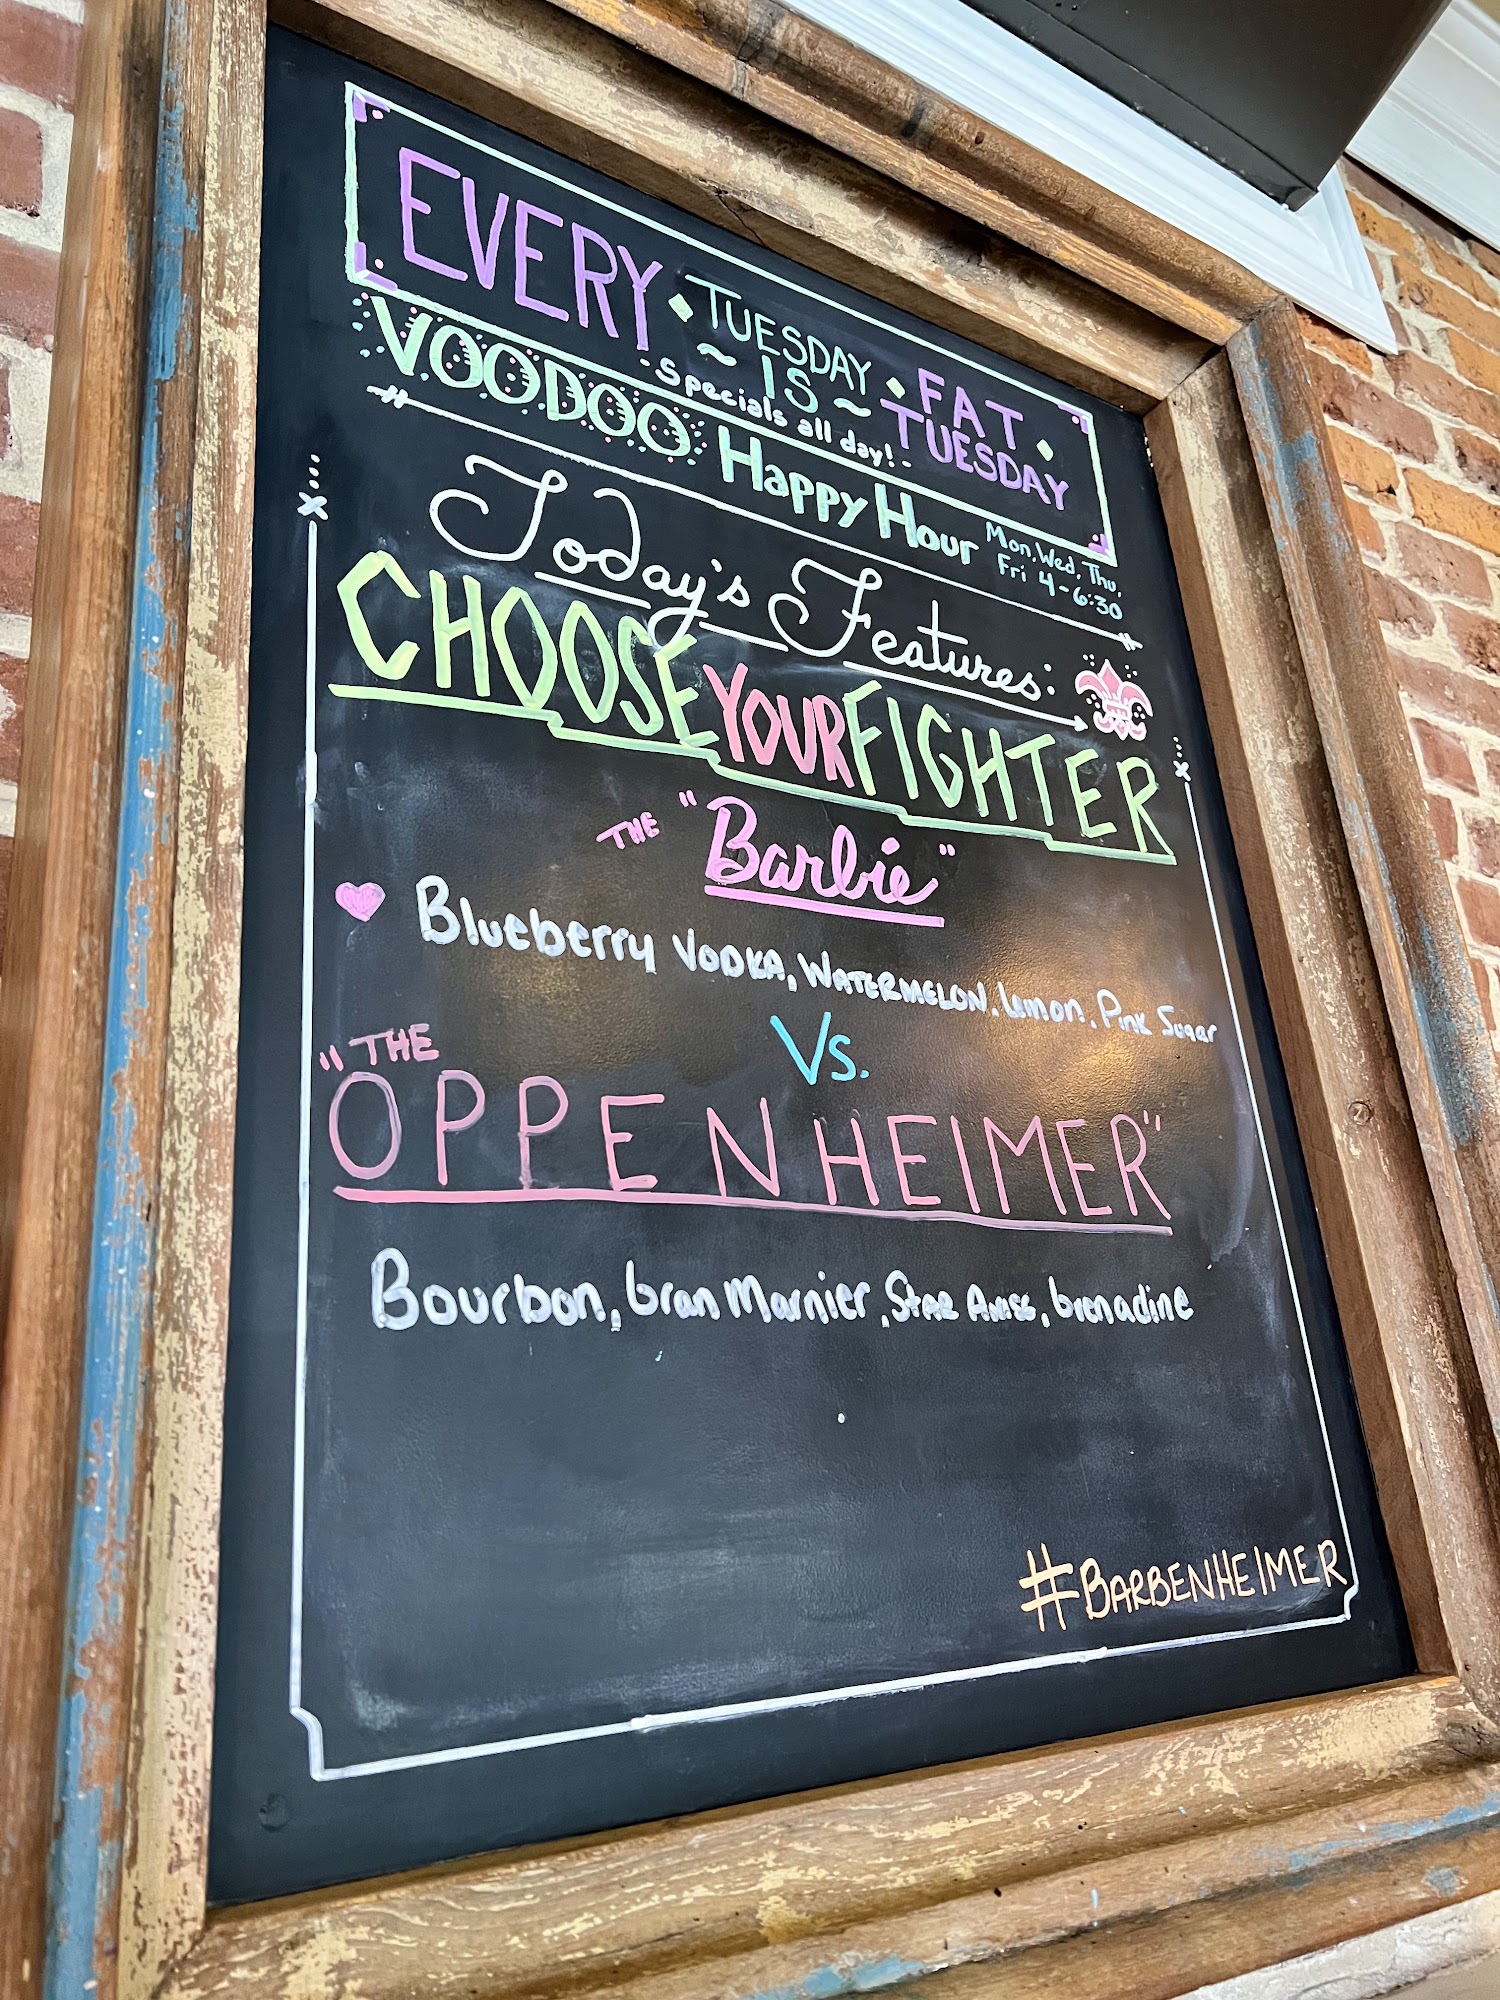 EVERY TUESDAY IS FAT TUESDAY
-Specials all day!-
VOODOO Happy Hour Mon, Wed, Thu, Fri 4-6:30
Today's Features:
CHOOSE YOUR FIGHTER
THE "Barbie"
Blueberry VODKA, WATERMELON, Lemon, Pink Sugar
Vs.
"THE
OPPENHEIMER"
Bourbon, Gran Marnier, Star Anise, Grenadine
#BARBENHEIMER